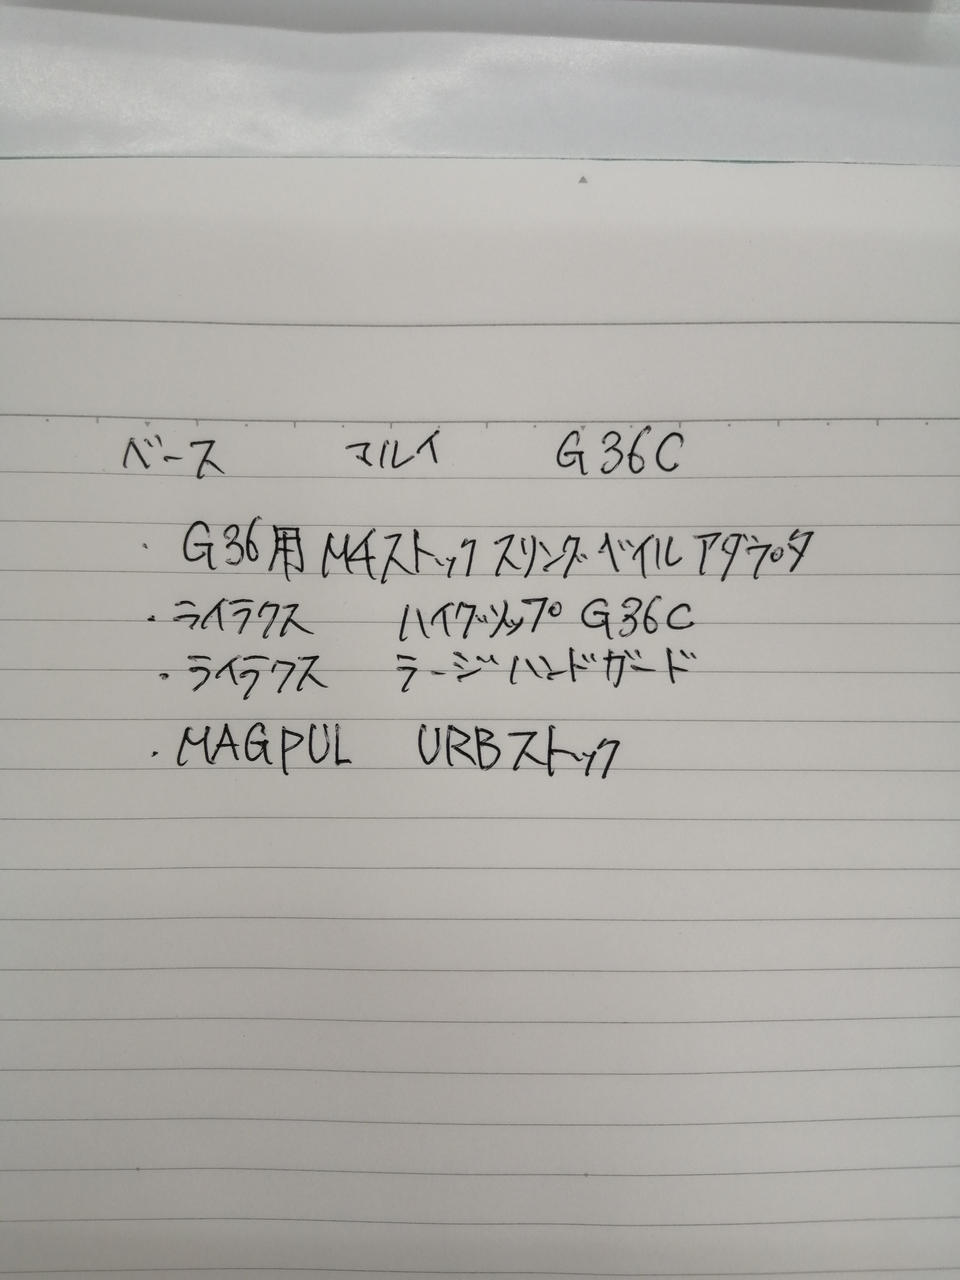 ベース マルイ G36C
・G36用M4ストックスリングベイルアダプタ
・ライラクス ハイグリップG36C
・ライラクス ラージハンドガード
・MAGPUL URBストック